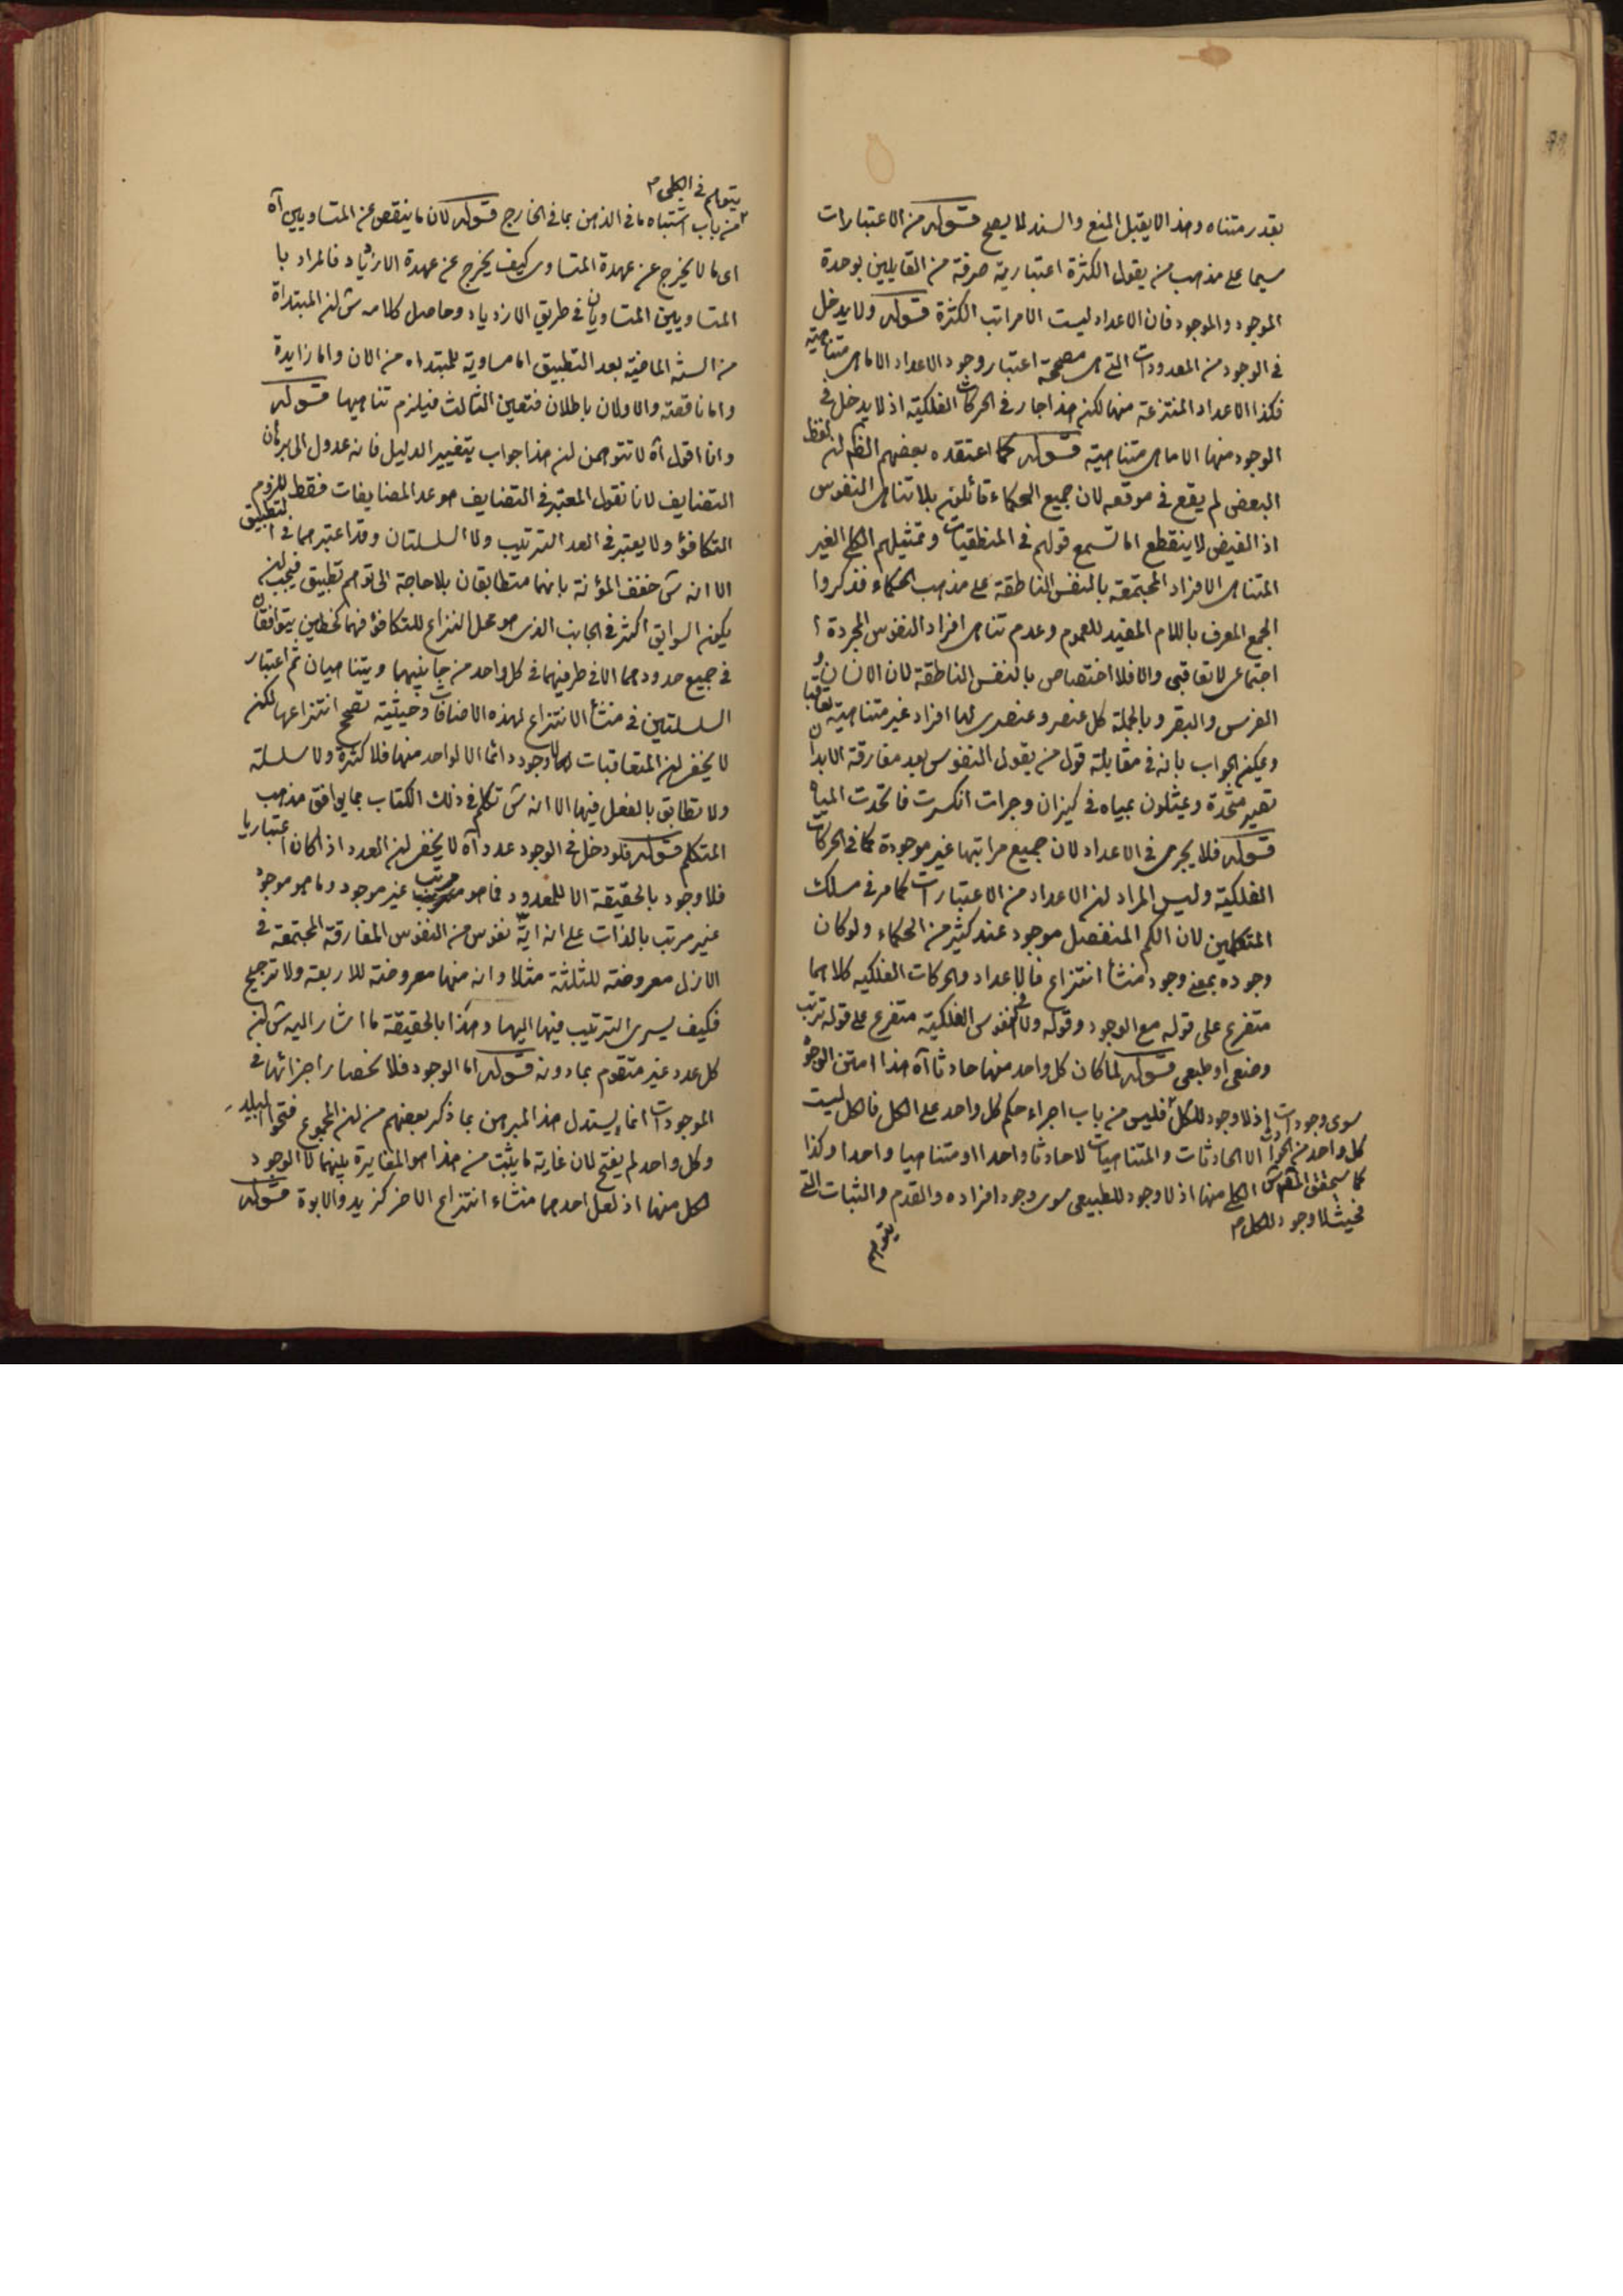 بقدر متناه وهذا لا يقبل المنع والسند لا يصح قوله من الاعتبارات
سيما على مذهب من يقول الكثرة اعتبارية صرفة من القايلين بوحدة
الموجود والموجود فان الاعداد ليست الا مراتب الكثرة قوله ولا يدخل
في الوجود من المعدودات التي هى مصححة اعتبار وجود الاعداد الا ما هى متناهية
فكذا الاعداد المنتزعة منها لكن هذا جار في الحركات الفلكية اذ لا يدخل في
الوجود منها الا ما هى متناهية قوله كما اعتقده بعضهم الظ ان لفظ
البعض لم يقع في موقعه لان جميع الحكماء قائلون بلا تناهى النفوس
اذ الفيض لا ينقطع اما تسمع قولهم في المنطقيات وتمثيلهم الكلى الغير
المتناهى الافراد المجتمعة بالنفس الناطقة على مذهب الحكماء فذكروا
الجمع المعرف باللام المفيد للعموم وعدم تناهى افراد النفوس المجردة
اجتماعى لا تعاقبى والا فلا اختصاص بالنفس الناطقة لان الانسان و
الفرس والبقر وبالجملة كل عنصر وعنصرى لها افراد غير متناهية تعاقبا
ويمكن الجواب بانه في مقابلة قول من يقول النفوس بعد مفارقة الابدان
تصير متحدة ويمثلون بمياه في كيزان وجرات انكسرت فاتحدت المياه
قوله فلا يجرى في الاعداد لان جميع مراتبها غير موجودة كما في الحركات
الفلكية وليس المراد ان الاعداد من الاعتبارات كما مر في مسلك
المتكلمين لان الكم المنفصل موجود عند كثير من الحكماء ولو كان
وجوده بمعنى وجود منشأ انتزاع فالاعداد والحركات الفلكيه كلاهما
متفرع على قوله مع الوجود وقوله ولا في النفوس الفلكية متفرع على قوله ترتب
وضعى او طبعى قوله لما كان كل واحد منها حادثا آه هذا امتن الوجوه
سوى وجودات اذ لا وجود للكل فليس من باب اجراء حكم كل واحد على الكل فالكل ليست
كل واحد من الاجزاء الا الحادثات والمتناهيات لا حادثا واحدا او متناهيا واحدا وكذا
كما سيحقق الش الكلى منها اذ لا وجود للطبيعى سوى وجود افراده والقدم والثبات التى
فحيث لا وجود للكل م
يتوهم
يتوهم في الكلى م
من باب اشتباه ما في الذهن بما في الخارج قوله لان ما ينقص عن المتساويين آه
اى ما لا يخرج عن عهدة المتساوى كيف يخرج عن عهدة الازياد فالمراد با
المتساويين المتساويان في طريق الازدياد وحاصل كلامه ش ان المبتداة
من السنة الماضية بعد التطبيق اما مساوية للمبتداه من الان واما زايدة
واما ناقصة والاولان باطلان فتعين الثالث فيلزم تناهيها قوله
وانا اقول آه لا تتوهمن ان هذا جواب بتغيير الدليل فانه عدول الى برهان
التضايف لانا نقول المعتبر في التضايف هو عد المضايفات فقط للزوم
التكافؤ ولا يعتبر في العد الترتيب ولا السلسلتان وقد اعتبرهما في التطبيق
الا انه ش خفف المؤنة بانهما متطابقان بلا حاجة الى توهم تطبيق فيجب ان
يكون السوابق اكثر في الجانب الذى هو محل النزاع للتكافؤ فهما كخطين يتوافقان
في جميع حدودهما الا في طرفيهما في كل واحد من جانبيهما ويتناهيان ثم اعتبار
السلسلتين في منشأ الانتزاع لهذه الاضافات وحيثية تصحح انتزاعها لكن
لا يخفى ان المتعاقبات لا وجود دائما الا لواحد منها فلا كثرة ولا سلسلة
ولا تطابق بالفعل فيها الا انه ش تكلم في ذلك الكتاب بما يوافق مذهب
المتكلم قوله فلو دخل في الوجود عدد آه لا يخفى ان العدد اذا كان اعتباريا
فلا وجود بالحقيقة الا للمعدود فما هو مرتب غير موجود وما هو موجود
غير مرتب بالذات على انه اية نفوس من النفوس المفارقة المجتمعة في
الازل معروضة للثلثة مثلا وانه منها معروضة للاربعة ولا ترجيح
فكيف يسرى الترتيب فيها اليها وهكذا بالحقيقة ما اشار اليه ش ان
كل عدد غير متقوم بما دونه قوله اما الوجود فلانحصار اجزائها في
الموجودات انما يستدل هذا المبرهن بما ذكر بعضهم من ان المجموع
وكل واحد لم يفتح لان غاية ما يثبت من هذا هو المغايرة بينهما لا الوجود
لكل منها اذ لعل احدهما منشاء انتزاع الاخر كزيد والابوة قوله